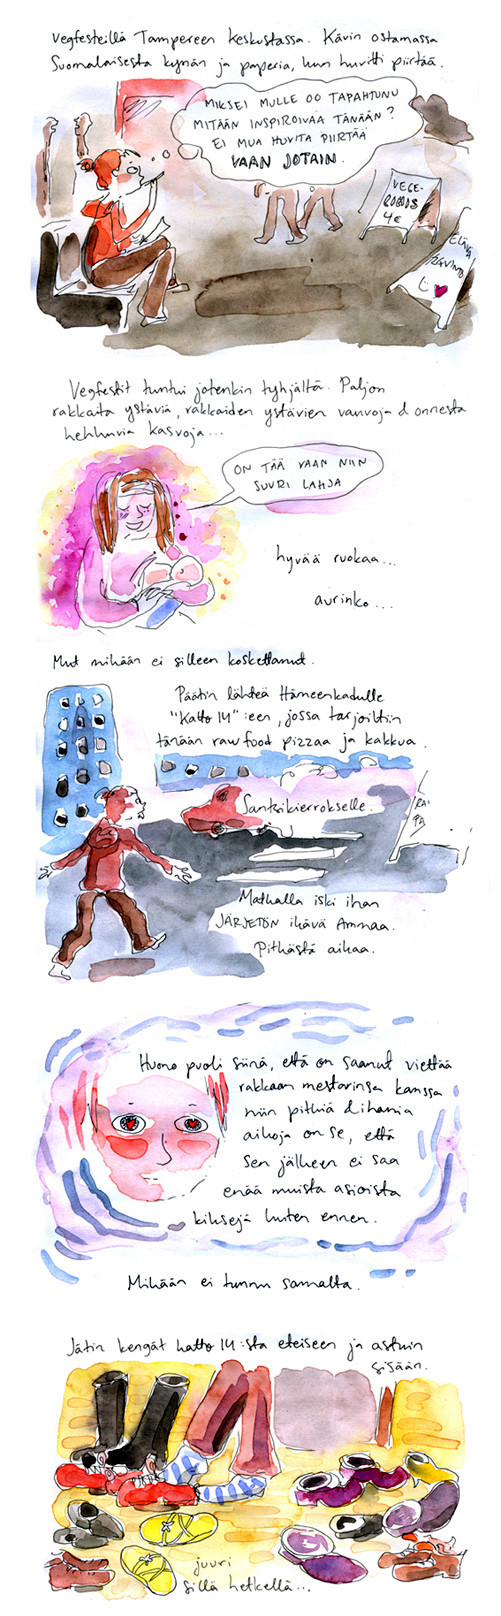 Vegfesteillä Tampereen keskustassa. Kävin ostamassa
Suomalaisesta kynän ja paperia, kun huvitti piirtää.
MIKSEI MULLE OO TAPAHTUNU
MITÄÄN INSPIROIVAA TÄNÄÄN?
EI MUA HUVITA PIIRTÄÄ
VAAN JOTAIN.
VEGE-
4€
ELÄVÄÄ
RAVINTO
Vegfestit tuntui jotenkin tyhjältä. Paljon
rakkaita ystäviä, rakkaiden ystävien vauvoja & onnesta
hehkuvia kasvoja...
ON TÄÄ VAAN NIIN
SUURI LAHJA
hyvää ruokaa...
aurinko...
Mut mikään ei silleen koskettanut.
Päätin lähteä Hämeenkadulle
"Katto 14":een, jossa tarjoiltiin
tänään raw food pizzaa ja kakkua.
Santsikierrokselle.
Matkalla iski ihan
JÄRJETÖN ikävä Ammaa.
Pitkästä aikaa.
Huono puoli siinä, että on saanut viettää
rakkaan mestarinsa kanssa
niin pitkiä & ihania
aikoja on se, että
sen jälkeen ei saa
enää muista asioista
kiksejä kuten ennen.
Mikään ei tunnu samalta.
Jätin kengät katto 14:sta eteiseen ja astuin
sisään.
juuri
sillä hetkellä...